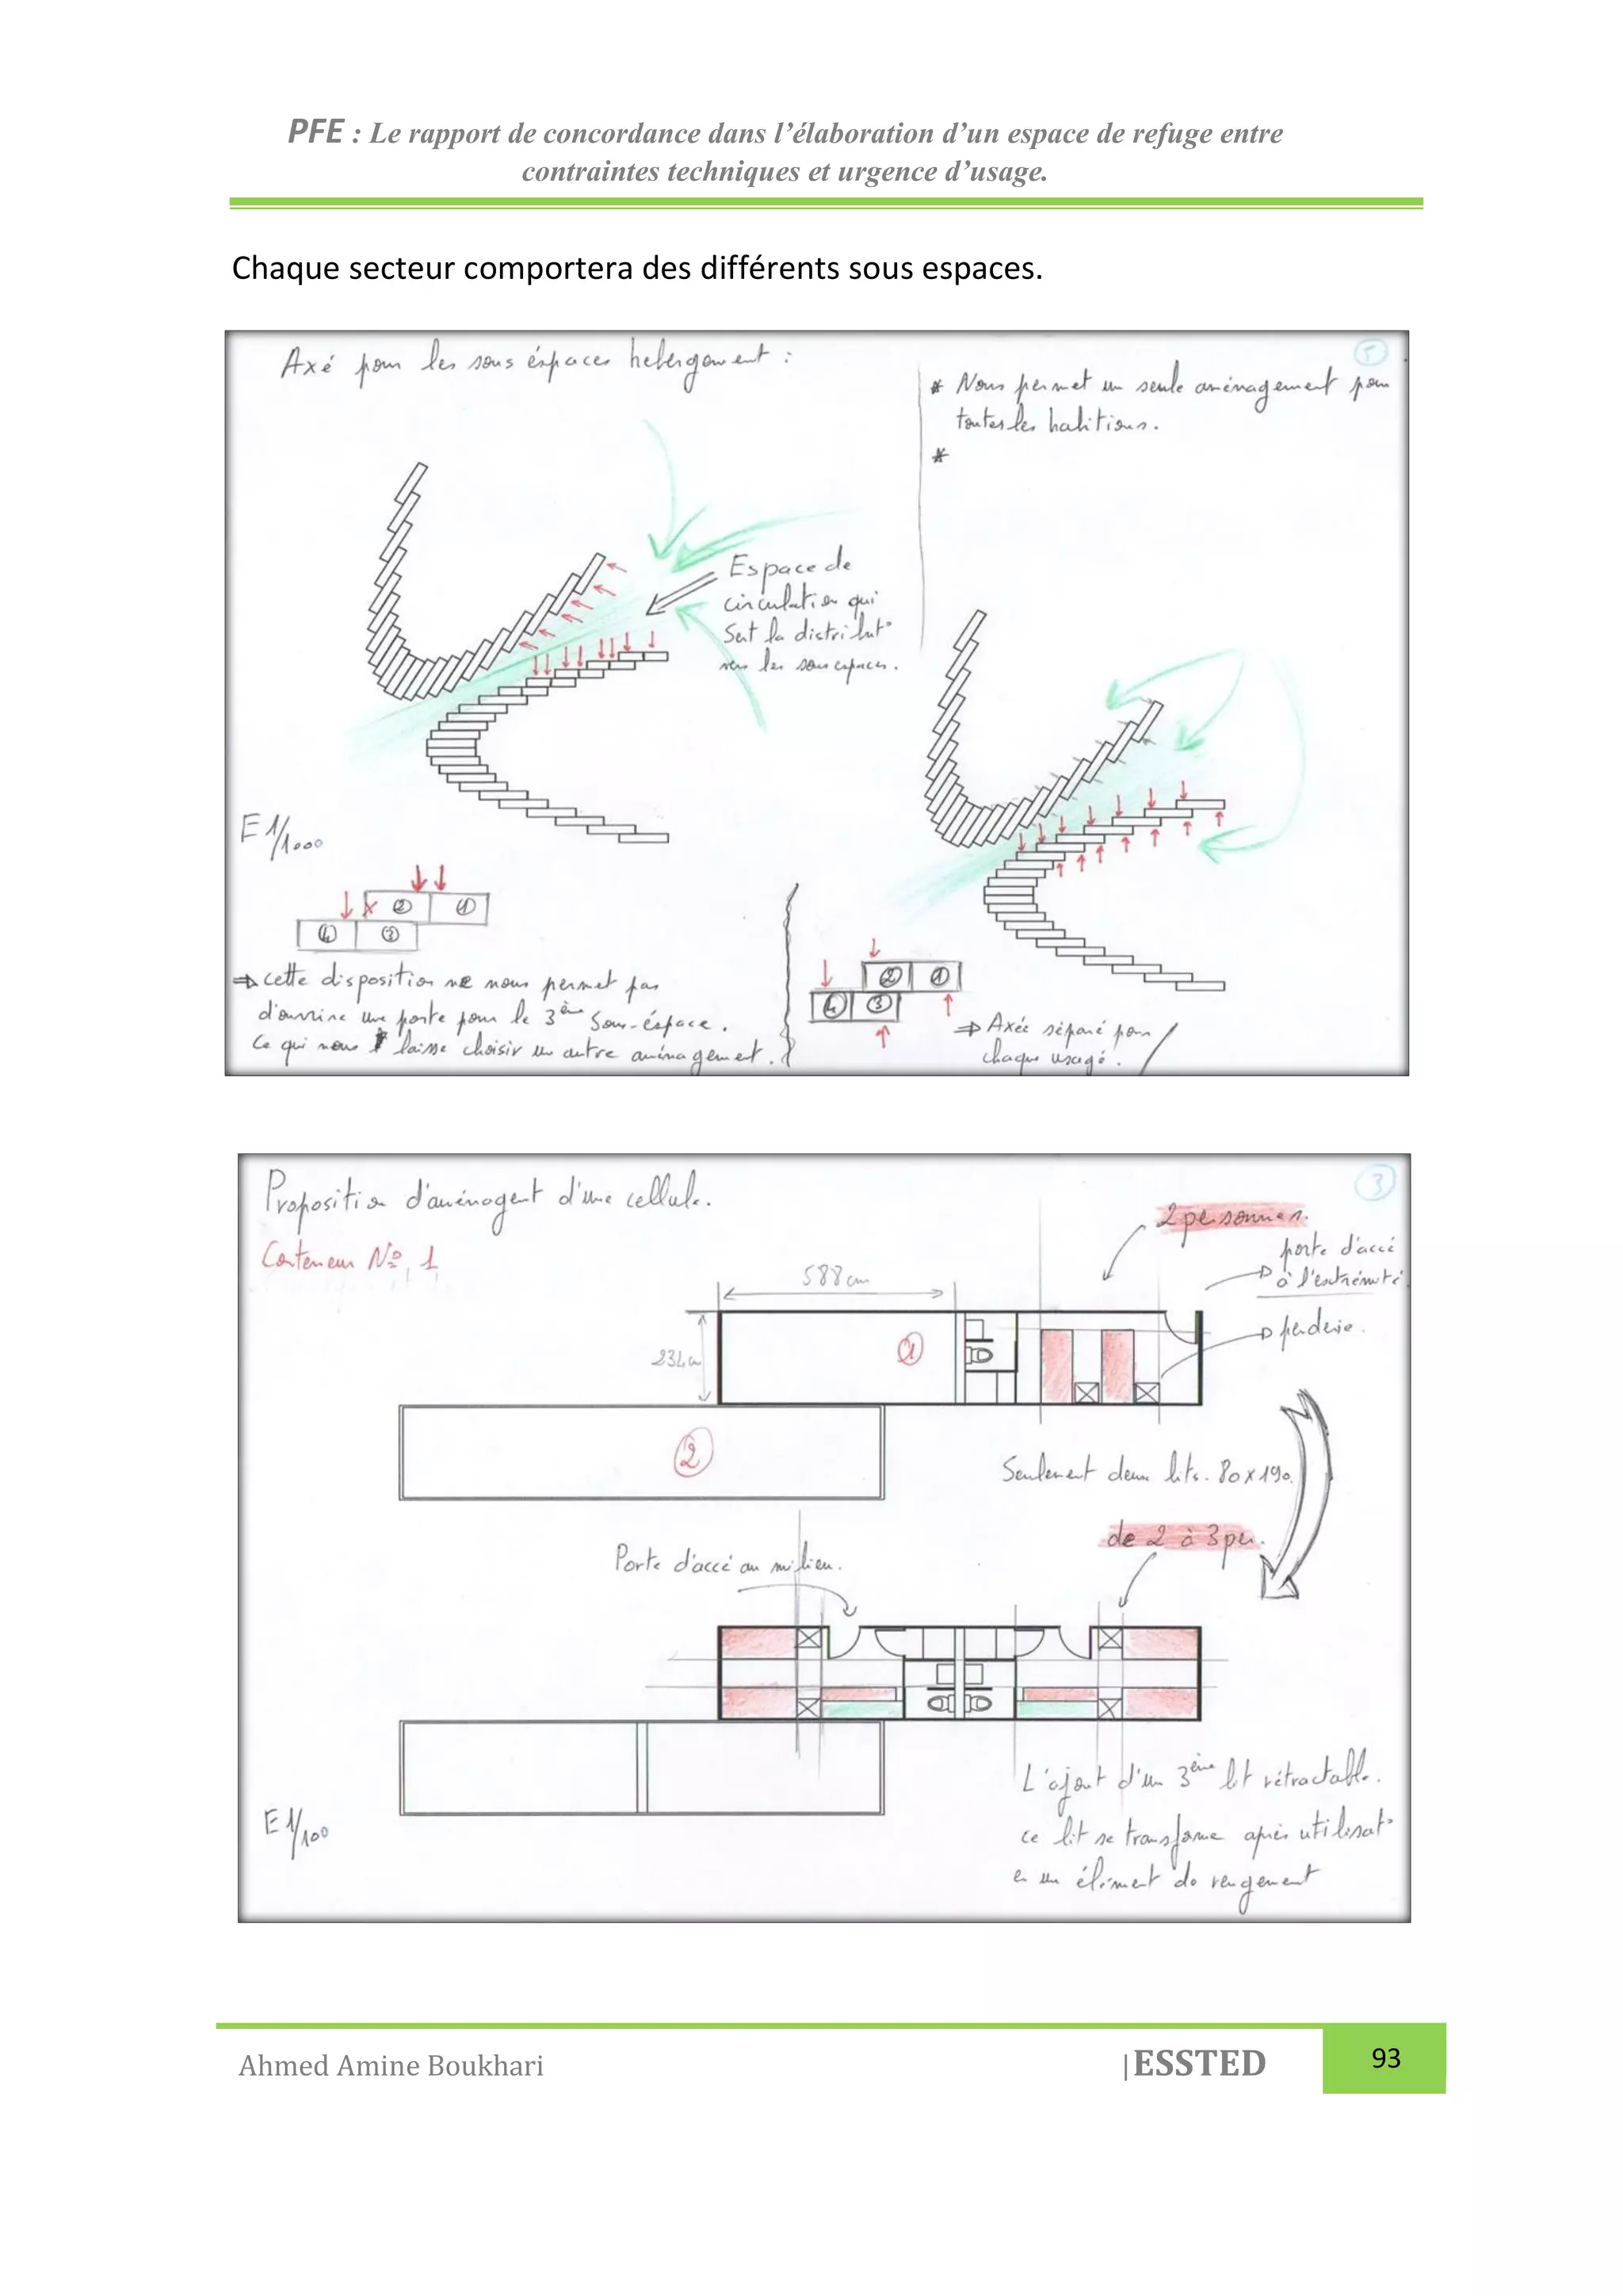 PFE : Le rapport de concordance dans l’élaboration d’un espace de refuge entre
contraintes techniques et urgence d’usage.
Chaque secteur comportera des différents sous espaces.
Axé pour les sous éspaces hebergement :
5
* Nous permet un seule aménagement pour
toutes les habitions.
*
Espace de
circulation qui
Sert la distribut°
vers les sous espaces.
E 1/1000
2 1
4 3
⇒ cette disposition ne nous permet pas
d'ouvrire une porte pour le 3ème Sous-éspace.
Ce qui nous laisse choisir un autre aménagement.
2 1
4 3
⇒ Axée séparé pour
chaque usagé.
Proposition d'aménagent d'une cellule.
3
Conteneur N° 1
2 personnes.
porte d'accé
à l'extrémité.
588 cm
penderie.
234 cm
1
2
Seulement deux lits. 80 x 190.
de 2 à 3 per.
Porte d'accé au milieu.
L'ajout d'un 3ème lit rétractable.
ce lit se transforme après utilisat°
en un élément de rengement
E 1/100
Ahmed Amine Boukhari |ESSTED 93